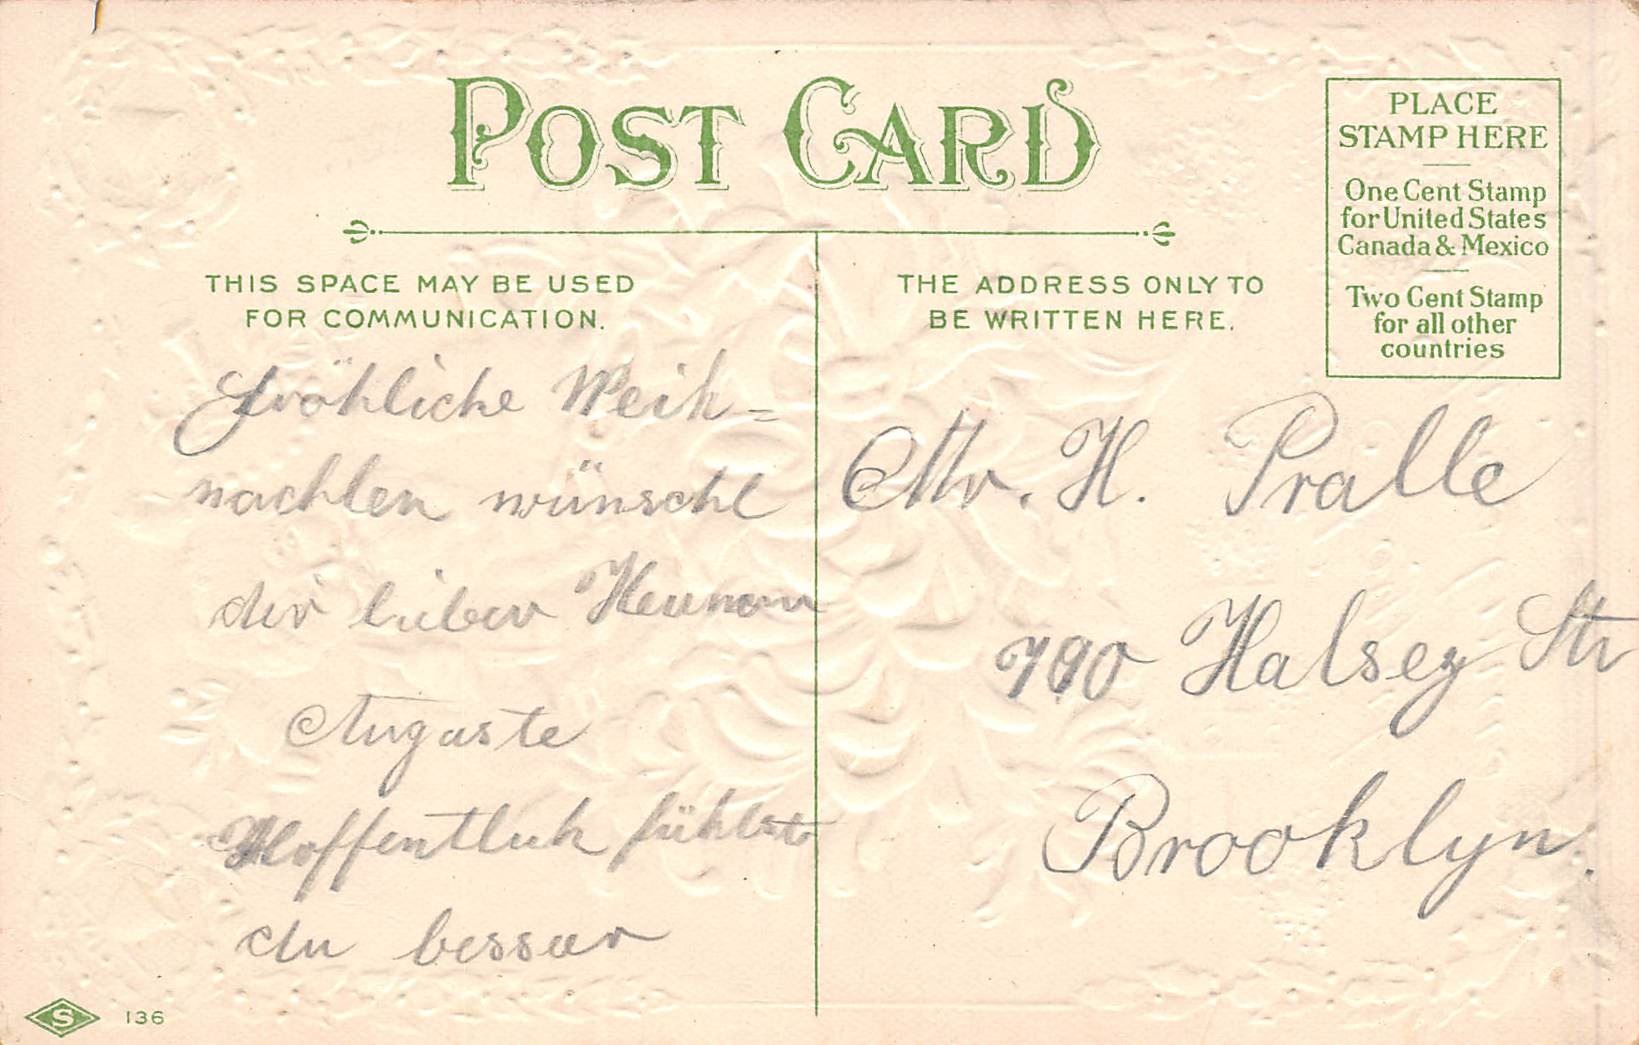 POST CARD
PLACE
STAMP HERE
One Cent Stamp
for United States
Canada & Mexico
Two Cent Stamp
for all other
countries
THIS SPACE MAY BE USED
FOR COMMUNICATION.
Fröhliche Weih=
nachten wünscht
dir lieber Herman
Auguste
Hoffentlich fühlst
du besser
THE ADDRESS ONLY TO
BE WRITTEN HERE.
Mr. H. Pralle
790 Halsey Str
Brooklyn.
S 136